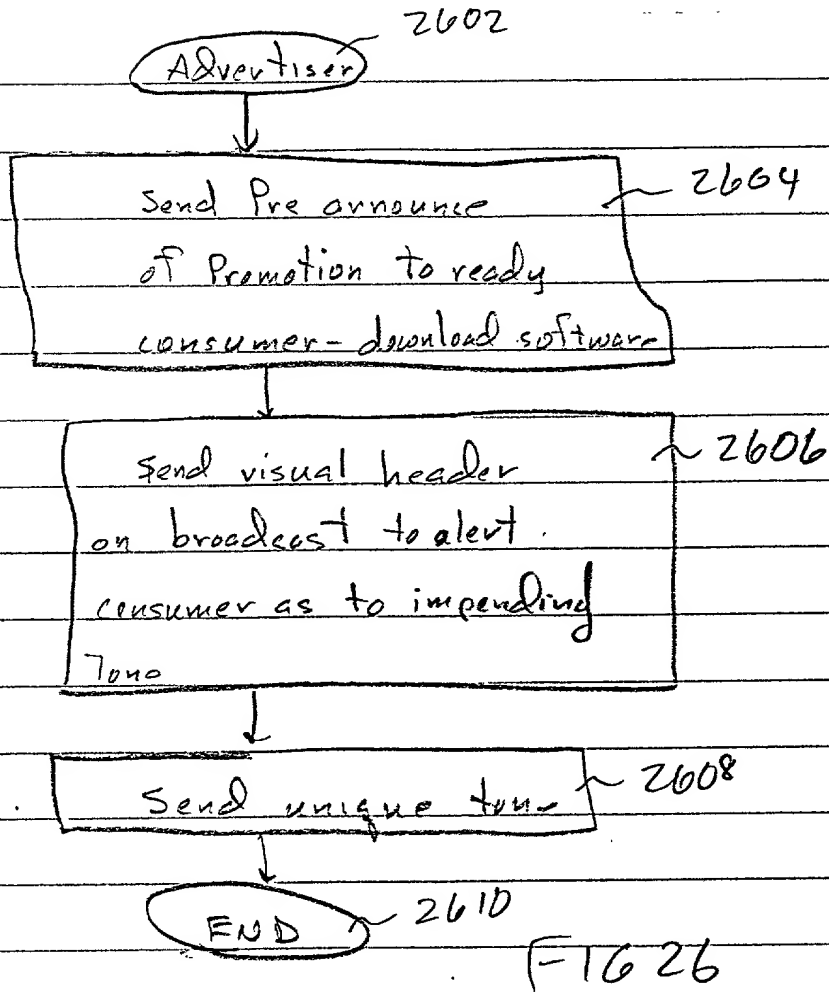 2602
Advertiser
2604
Send Pre announce
of Promotion to ready
consumer - download software
2606
Send visual header
on broadcast to alert
consumer as to impending
Tone
2608
Send unique tone
END
2610
FIG 26